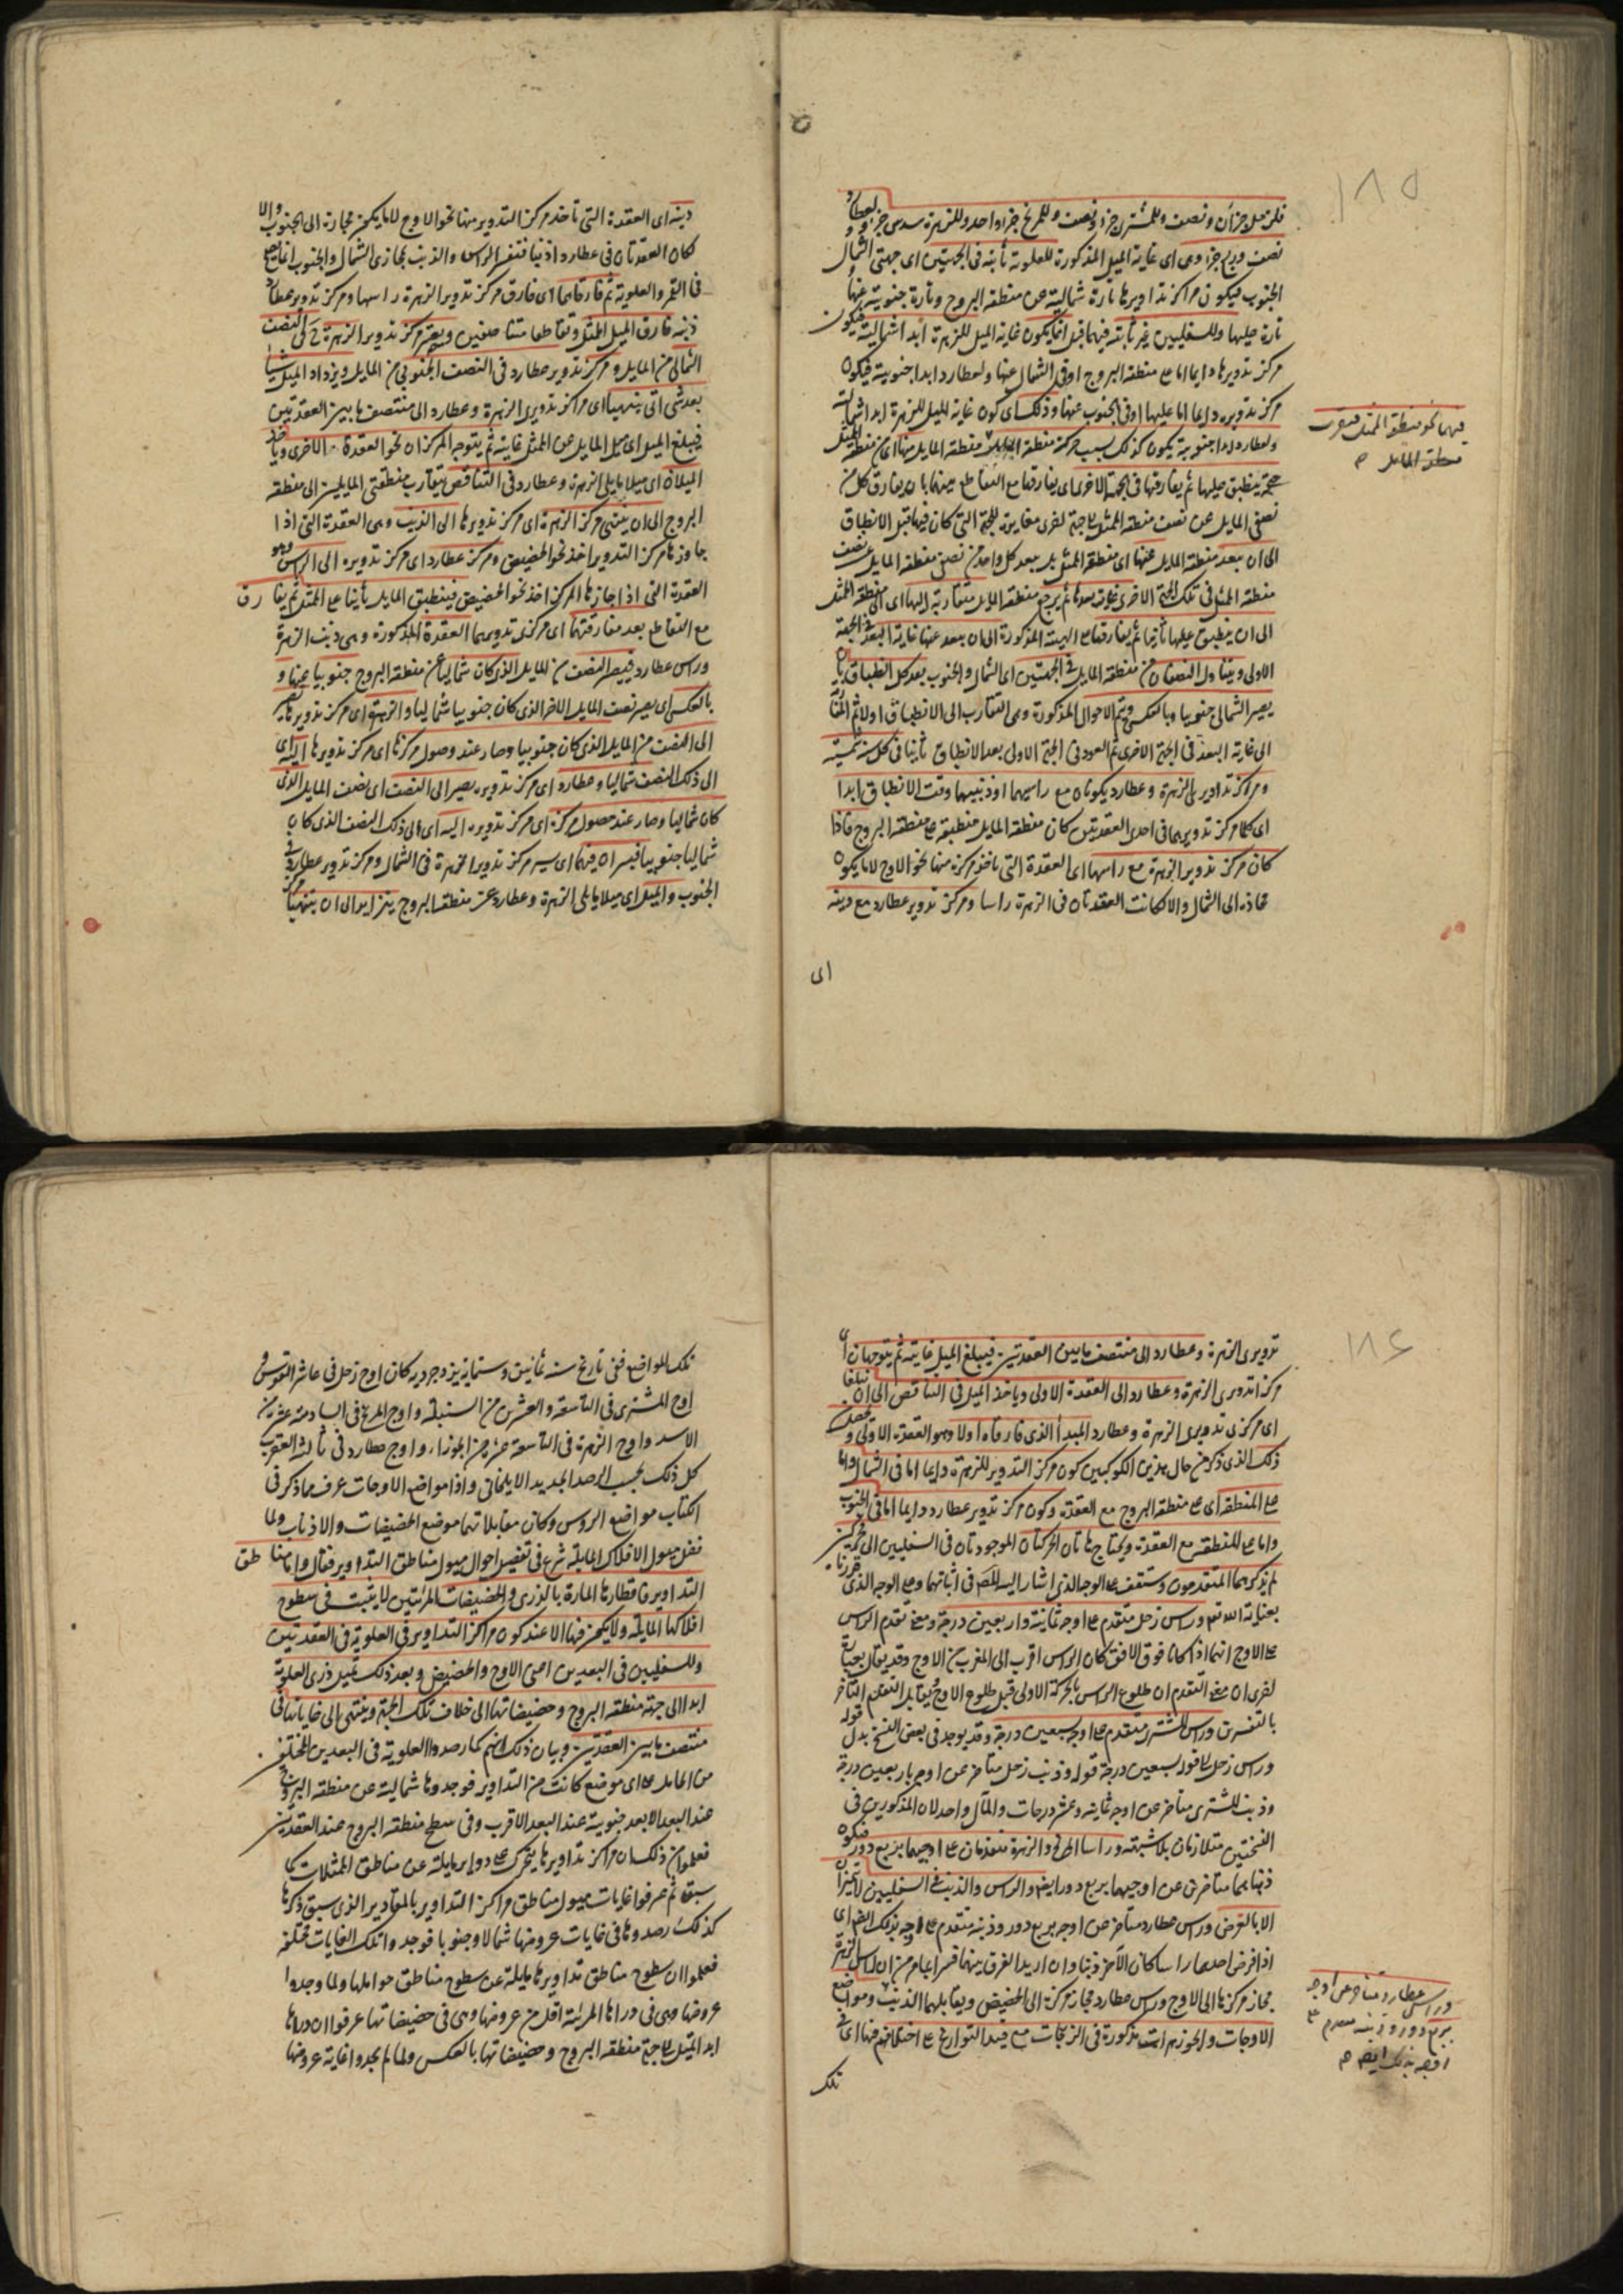 ١٨٥
فلزحل جزآن ونصف وللمشترى جزء ونصف وللمريخ جزء واحد وللزهرة سدس جزء ولعطارد
نصف وربع جزء وهى اى غاية الميل المذكورة للعلوية ثابتة فى الجهتين اى جهتى الشمال
الجنوب فيكون مراكز تداويرها تارة شمالية عن منطقة البروج وتارة جنوبية عنها
تارة عليها وللسفليين غير ثابتة فيهما قبل انما يكون غاية الميل للزهرة ابدا شمالية فيكون
مركز تدويرها دايما اما على منطقة البروج او فى الشمال عنها ولعطارد ابدا جنوبية فيكون
مركز تدويره دايما اما عليها او فى الجنوب عنها وذلك اى كون غاية الميل للزهرة ابدا شمالية
ولعطارد ابدا جنوبية يكون كذلك بسبب حركة منطقة المايل منها اى من منطقة الممثل
حتى ينطبق عليها ثم يفارقها فى الجهة الاخرى اى يفارقها مع التقاطع بينهما بان يفارق كل من
نصفى المايل عن نصف منطقة الممثل الى جهة اخرى مغايرة للجهة التى كان فيها قبل الانطباق
الى ان يبعد منطقة المايل عنها اى منطقة الممثل بل يبعد كل واحد من نصفى منطقة المايل عن نصف
منطقة الممثل فى تلك الجهة الاخرى غاية بعدها ثم يرجع منطقة المايل متقاربة اليها اى الى منطقة الممثل
الى ان ينطبق عليها ثانيا ثم يفارقها على الهيئة المذكورة الى ان يبعد عنها غاية البعد فى الجهة
الاولى ويتبادل النصفان من منطقة المايل فى الجهتين اى الشمال والجنوب بعد كل انطباق بان
يصير الشمالى جنوبيا وبالعكس ويتم الاحوال المذكورة وهى التقارب الى الانطباق اولا ثم
الى غاية البعد فى الجهة الاخرى ثم العود فى الجهة الاولى بعد الانطباق ثانيا فى كل سنة شمسية
ومراكز تداوير الزهرة وعطارد يكونان مع راسيهما او ذنبيهما وقت الانطباق ابدا
اى كلما مركز تدويرهما فى احدى العقدتين كان منطقة المايل منطبقة على منطقة البروج فاذا
كان مركز تدوير الزهرة مع راسها اى العقدة التى ياخذ مركزه منها نحو الاوج لا ما يكون
مجازه الى الشمال والا لكانت العقدتان فى الزهرة راسا ومركز تدوير عطارد مع ذنبه
اى
فيهما نحو منطقة الممثل فيقرب
منطقة المايل م
ذنبه اى العقدة التى تاخذ مركز التدوير منها نحو الاوج لا ما يكون مجازه الى الجنوب والا
لكان العقدتان فى عطارد ذنبا فتفسير الراس والذنب بمجازى الشمال والجنوب انما يصح
فى القمر والعلوية ثم فارقاهما اى فارق مركز تدوير الزهرة راسها ومركز تدوير عطارد
ذنبه فارق الميل الممثل وتقاطعا متناصفين ويصير مركز تدوير الزهرة ح فى النصف
الشمالى من المايل ومركز تدوير عطارد فى النصف الجنوبى من المايل ويزداد الميل شيئا
بعد شئ اتى ينتهيا اى مراكز تدويرى الزهرة وعطارد الى منتصف ما بين العقدتين
فيبلغ الميل اى ميل المايل عن الممثل غايته ثم يتوجه المركزان نحو العقدة الاخرى وياخذ
الميلان اى ميلا مايلى الزهرة وعطارد فى التناقص بتقارب منطقتى المايلين الى منطقة
البروج الى ان ينتهى مركز الزهرة اى مركز تدويرها الى الذنب وهى العقدة التى اذا
جاوزها مركز التدوير اخذ نحو الحضيض ومركز عطارد اى مركز تدويره الى الراس وهو
العقدة التى اذا جازها المركز اخذ نحو الحضيض فينطبق المايل ثانيا على الممثل ثم يفارق
مع التقاطع بعد مفارقتهما اى مركزى تدويرهما العقدة المذكورة وهى ذنب الزهرة
وراس عطارد فيصير النصف من المايل الذى كان شماليا عن منطقة البروج جنوبيا عنها و
بالعكس اى يصير نصف المايل الاخر الذى كان جنوبيا شماليا والزهرة اى مركز تدويرها يصير
الى النصف من المايل الذى كان جنوبيا وصار عند وصول مركزها اى مركز تدويرها اليه اى
الى ذلك النصف شماليا وعطارد اى مركز تدويره يصير الى النصف اى نصف المايل الذى
كان شماليا وصار عند حصول مركزه اى مركز تدويره اليه اى الى ذلك النصف الذى كان
شماليا جنوبيا فيسيران فيهما اى يسير مركز تدوير الزهرة فى الشمال ومركز تدوير عطارد فى
الجنوب والميل اى ميلا مايلى الزهرة وعطارد عن منطقة البروج يتزايد الى ان ينتهيا
١٨٦
تدويرى الزهرة وعطارد الى منتصف ما بين العقدتين فيبلغ الميل غايته ثم يتوجهان اى
مركزا تدويرى الزهرة وعطارد الى العقدة الاولى وياخذ الميل فى التناقص الى ان يبلغا
اى مركزى تدويرى الزهرة وعطارد المبدأ الذى فارقاه اولا وهو العقدة الاولى
ذلك الذى ذكر من حال هذين الكوكبين كون مركز التدوير للزهرة دايما اما فى الشمال واما
على المنطقة اى على منطقة البروج مع العقدة وكون مركز تدوير عطارد دايما اما فى الجنوب
واما على المنطقة مع العقدة ويحتاج هاتان الحركتان الموجودتان فى السفليين الى محركين
لم يذكرهما المتقدمون وستقف على الوجه الذى اشار اليه المص فى اثباتهما وعلى الوجه الذى
بعناية الله تعم وراس زحل متقدم على اوجه ثمانية واربعين درجة ومعنى تقدم الراس
على الاوج انهما اذا كانا فوق الافق كان الراس اقرب الى المغرب من الاوج وقد يقال بعبارة
اخرى ان معنى التقدم ان طلوع الراس بالحركة الاولى قبل طلوع الاوج ويقابل التقدم التاخر
بالتفسيرين وراس المشترى متقدم على اوجه سبعين درجة وقد يوجد فى بعض النسخ بدل قوله
وراس زحل الى قوله سبعين درجة قوله وذنب زحل متاخر عن اوجه باربعين درجة
وذنب المشترى متاخر عن اوجه ثمانية وعشر درجات والمآل واحد لان المذكورين فى
النسختين متلازمان بلا شبهة وراسا المريخ والزهرة متقدمان على اوجيهما بربع دور فيكون
ذنباهما متاخرين عن اوجيهما بربع دور ايضا والراس والذنب فى السفليين لا يتميزان
الا بالفرض وراس عطارد متاخر عن اوجه بربع دور وذنبه متقدم على اوجه بذلك ايضا اى
اذا فرض احدهما راسا كان الآخر ذنبا وان اريد الفرق بينهما فسر بما مر من ان راس الزهرة
مجاز مركزها الى الاوج وراس عطارد مجاز مركزه الى الحضيض ويقابلهما الذنب ومواضع
الاوجات والجوزهرات مذكورة فى الزيجات مع قيد التواريخ على اختلافهم فيها اى فى
تلك
وراس عطارد متاخر عن اوجه
بربع دور وذنبه متقدم على
اوجه بذلك ايضا م
تلك المواضع ففى تاريخ سنة ثمانين وستماية يزدجردية كان اوج زحل فى عاشر القوس و
اوج المشترى فى التاسعة والعشرين من السنبلة واوج المريخ فى السادسة عشر من
الاسد واوج الزهرة فى التاسعة عشر من الجوزاء واوج عطارد فى ثالث العقرب
كل ذلك بحسب الرصد الجديد الايلخانى واذا مواضع الاوجات عرف مما ذكر فى
الكتاب مواضع الروس وكان مقابلاتهما موضع الحضيضات والاذناب ولما
فصل ميول الافلاك المايلة شرع فى تفصيل احوال ميول مناطق التداوير فقال واما مناطق
التداوير فاقطارها المارة بالذرى والحضيضات المرئيتين لا يثبت فى سطوح
افلاكها المايلة ولا يكون فيها الا عند كون مراكز التداوير فى العلوية فى العقدتين
وللسفليين فى البعدين اعنى الاوج والحضيض وبعد ذلك تميل ذرى العلوية
ابدا الى جهة منطقة البروج وحضيضاتها الى خلاف تلك الجهة وينتهى الى غاياتها فى
منتصف ما بين العقدتين وبيان ذلك انهم لما رصدوا العلوية فى البعدين المختلفين
من الحامل على اى موضع كانت من التداوير فوجدوها شمالية عن منطقة البروج
عند البعد الابعد جنوبية عند البعد الاقرب وفى سطح منطقة البروج عند العقدتين
فعلموا من ذلك ان مراكز تداويرها يتحرك على دواير مايلة عن مناطق الممثلات كما
سبق ثم عرفوا غايات ميول مناطق مراكز التداوير بالمقادير الذى سبق ذكرها
كذلك رصدوها فى غايات عروضها شمالا وجنوبا فوجدوا تلك الغايات مختلفة
فعلموا ان سطوح مناطق تداويرها مايلة عن سطوح مناطق حواملها ولما وجدوا
عروضها وهى فى ذراها المرئية اقل من عروضها وهى فى حضيضاتها عرفوا ان ذراها
ابدا تميل الى جهة منطقة البروج وحضيضاتها بالعكس ولما لم يجدوا غاية عروضها